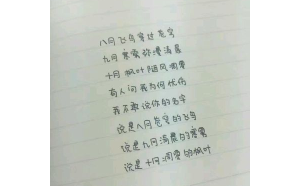 八月飞鸟穿过花穹
九月寒雾弥漫清晨
十月枫叶随风凋零
有人问我为何忧伤
我不敢说你的名字
说是八月花穹的飞鸟
说是九月清晨的寒雾
说是十月凋零的枫叶